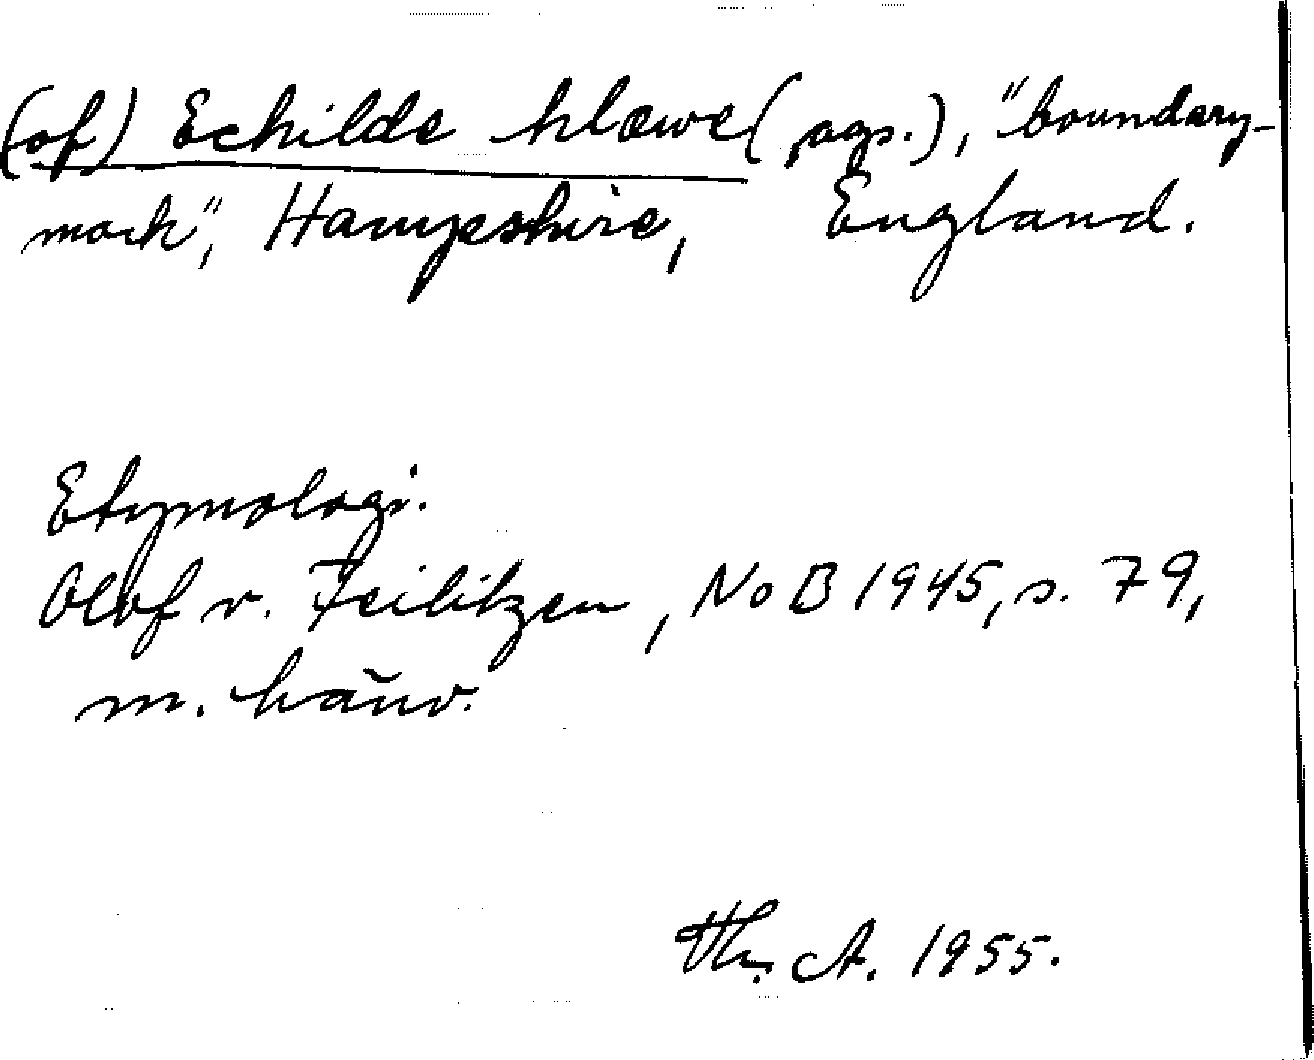 (of) Echilde hlæwe (ags.), "boundary-
mark", Hampeshire, England.
Etymologi.
Olof v. Feilitzen, NoB 1945, s. 79,
m. hänv.
Th. A. 1955.